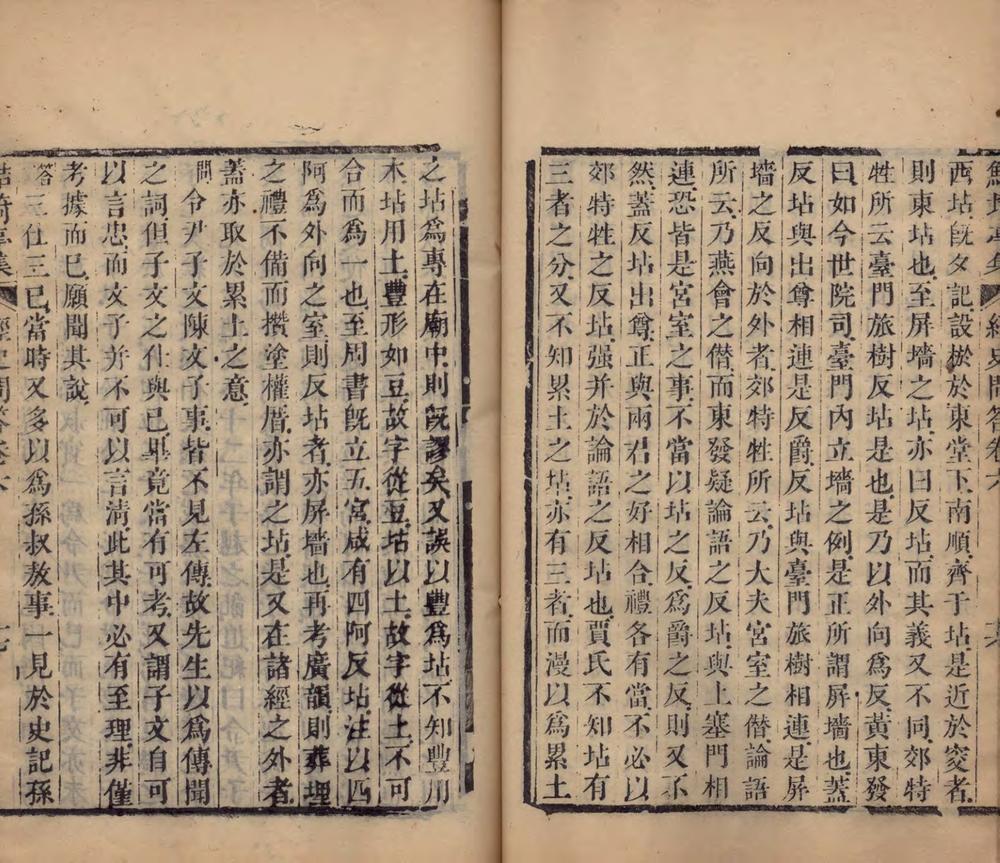 鮚埼亭集 經史問答卷六
西坫旣夕記設棜於東堂下南順齊于坫是近於窔者
則東坫也至屏墻之坫亦曰反坫而其義又不同郊特
牲所云臺門旅樹反坫是也是乃以外向爲反黃東發
曰如今世院司臺門內立墻之例是正所謂屏墻也蓋
反坫與出尊相連是反爵反坫與臺門旅樹相連是屏
墻之反向於外者郊特牲所云乃大夫宮室之僭論語
所云乃燕會之僭而東發疑論語之反坫與上塞門相
連恐皆是宮室之事不當以坫之反爲爵之反則又不
然蓋反坫出尊正與兩君之好相合禮各有當不必以
郊特牲之反坫强并於論語之反坫也賈氏不知坫有
三者之分又不知累土之坫亦有三者而漫以爲累土
之坫爲專在廟中則旣謬矣又誤以豐爲坫不知豐用
木坫用土豐形如豆故字從豆坫以土故字從土不可
合而爲一也至周書旣立五宮咸有四阿反坫注以四
阿爲外向之室則反坫者亦屏墻也再考廣韻則葬埋
之禮不備而攢塗權厝亦謂之坫是又在諸經之外者
蓋亦取於累土之意
問令尹子文陳文子事皆不見左傳故先生以爲傳聞
之詞但子文之仕與已畢竟當有可考又謂子文自可
以言忠而文子并不可以言清此其中必有至理非僅
考據而已願聞其說
答三仕三已當時又多以爲孫叔敖事一見於史記孫
鮚埼亭集 經史問答卷六